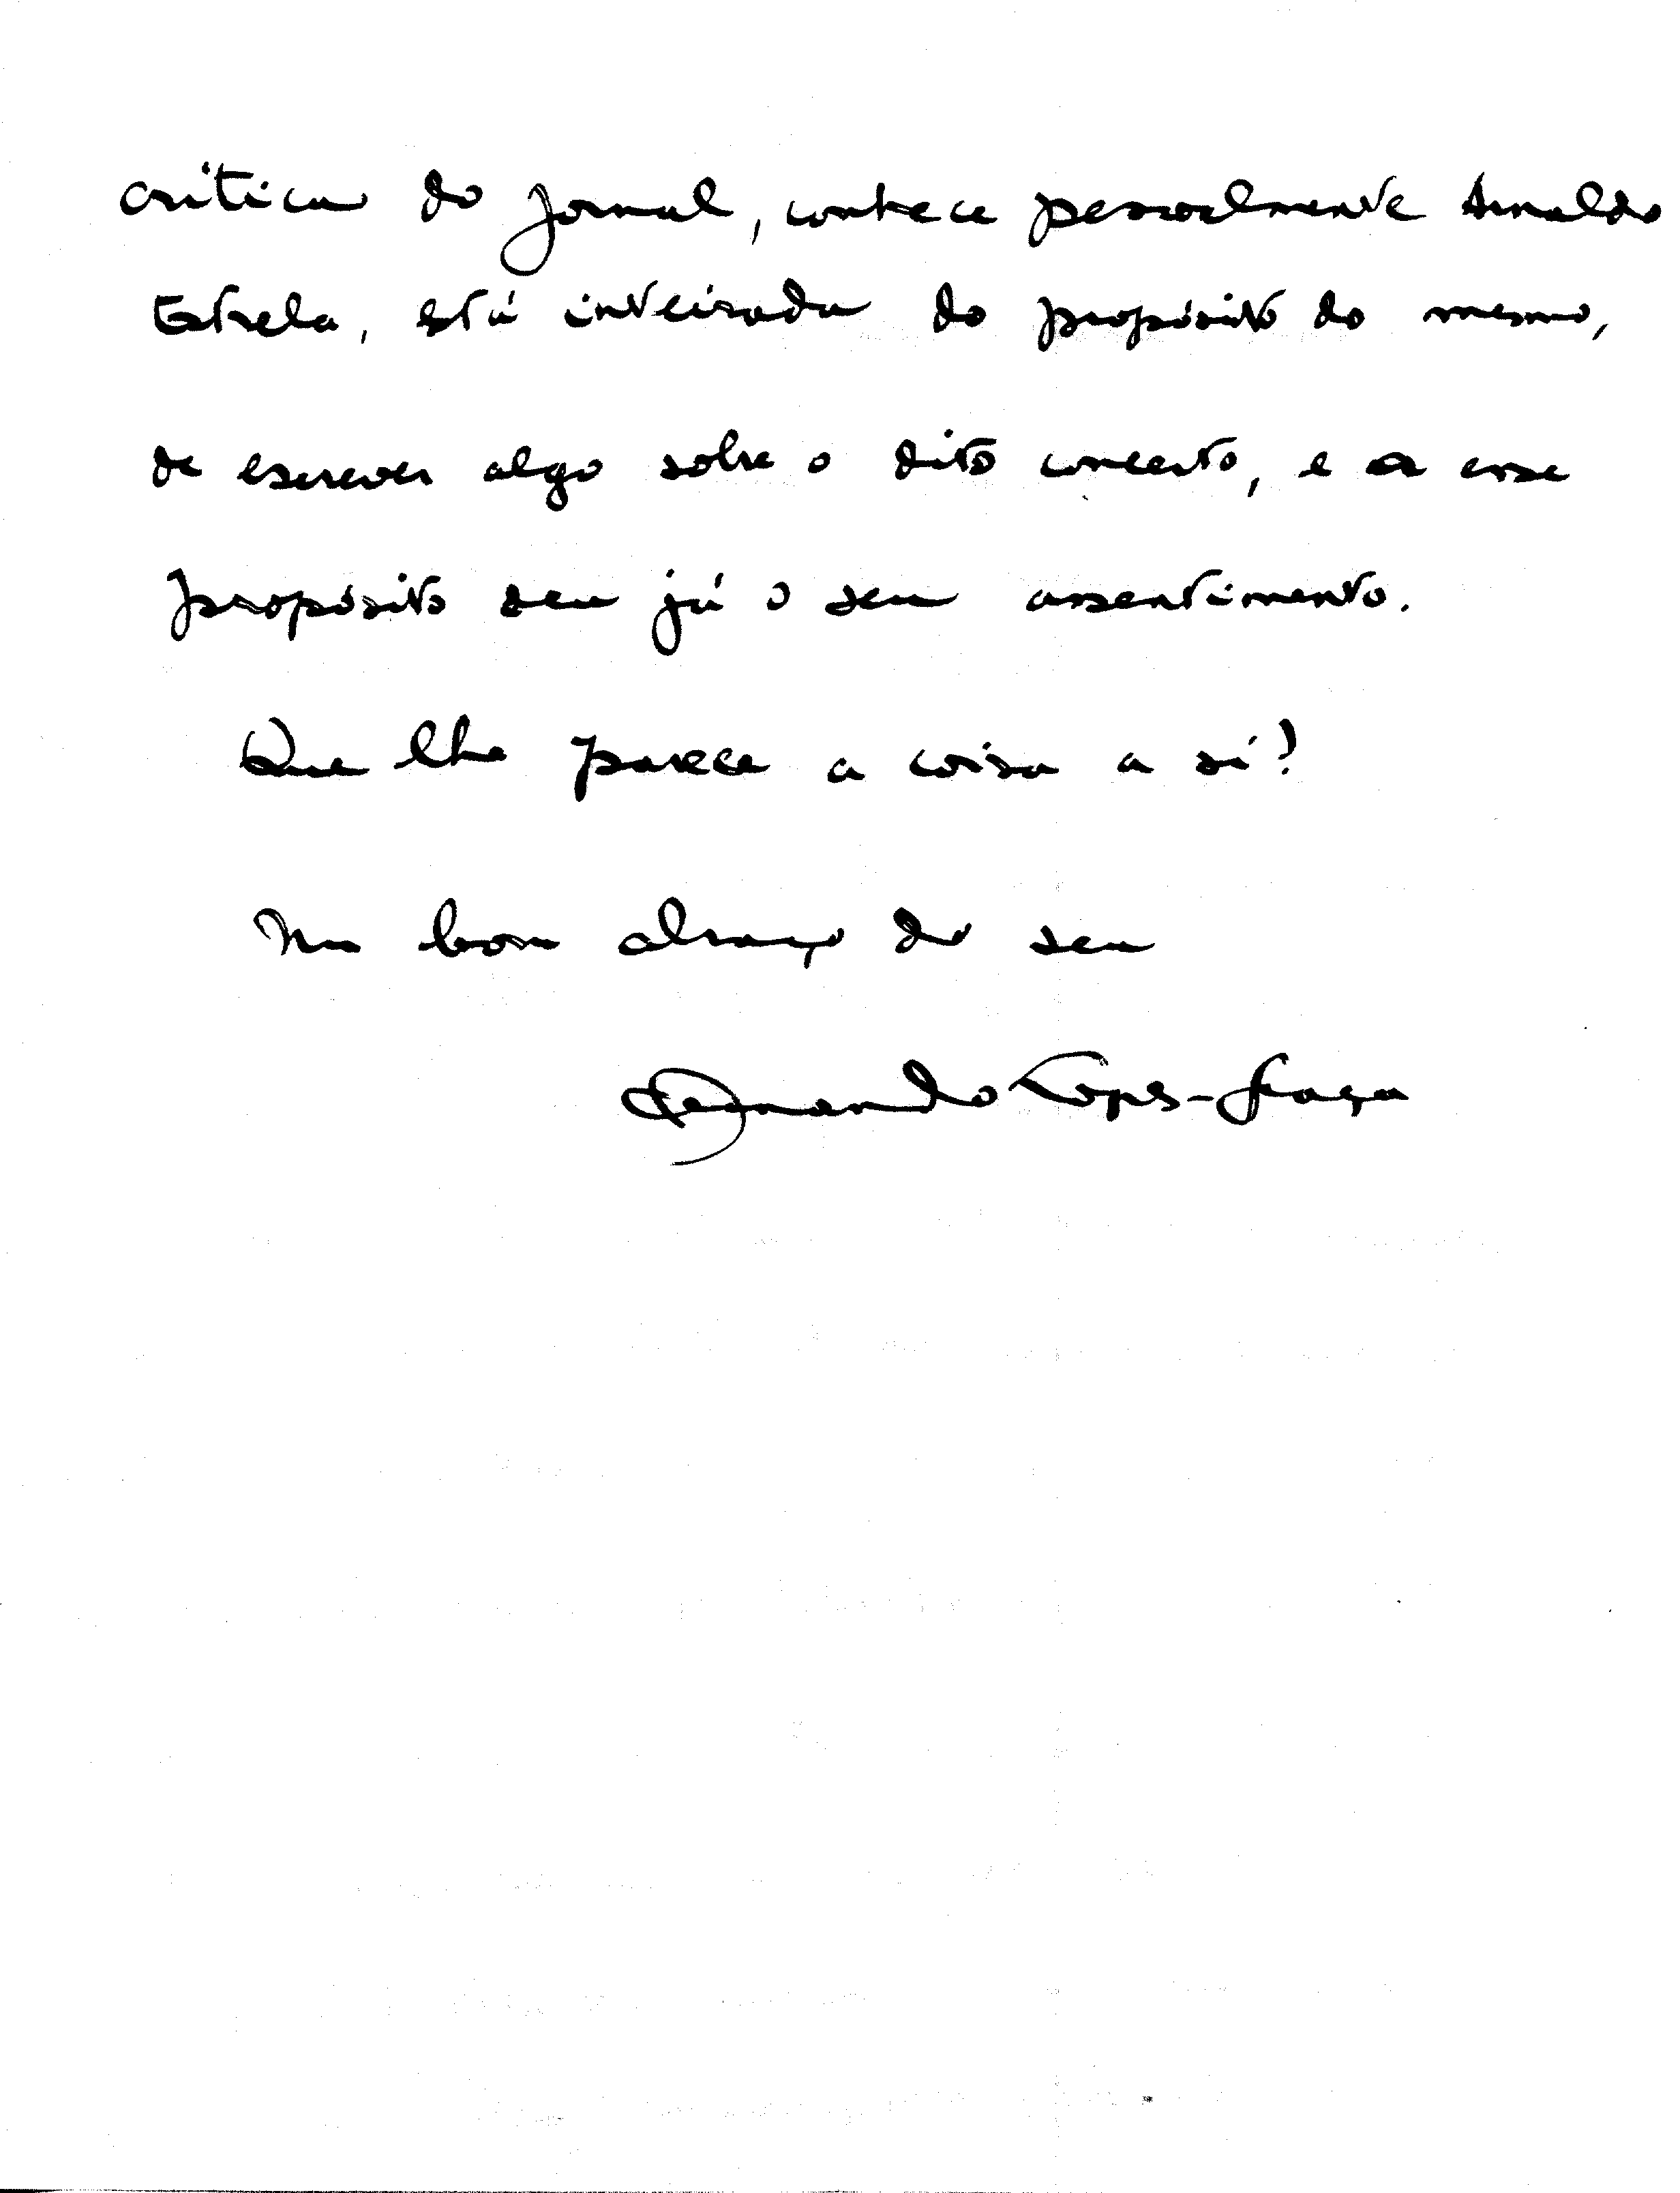 crítica do jornal, conhece pessoalmente Arnaldo
Estrela, está inteirada do propósito do mesmo,
de escrever algo sobre o dito concerto, e a esse
propósito deu já o seu assentimento.
Que lhe parece a coisa a si?
Um bom abraço do seu
Fernando Lopes-Graça